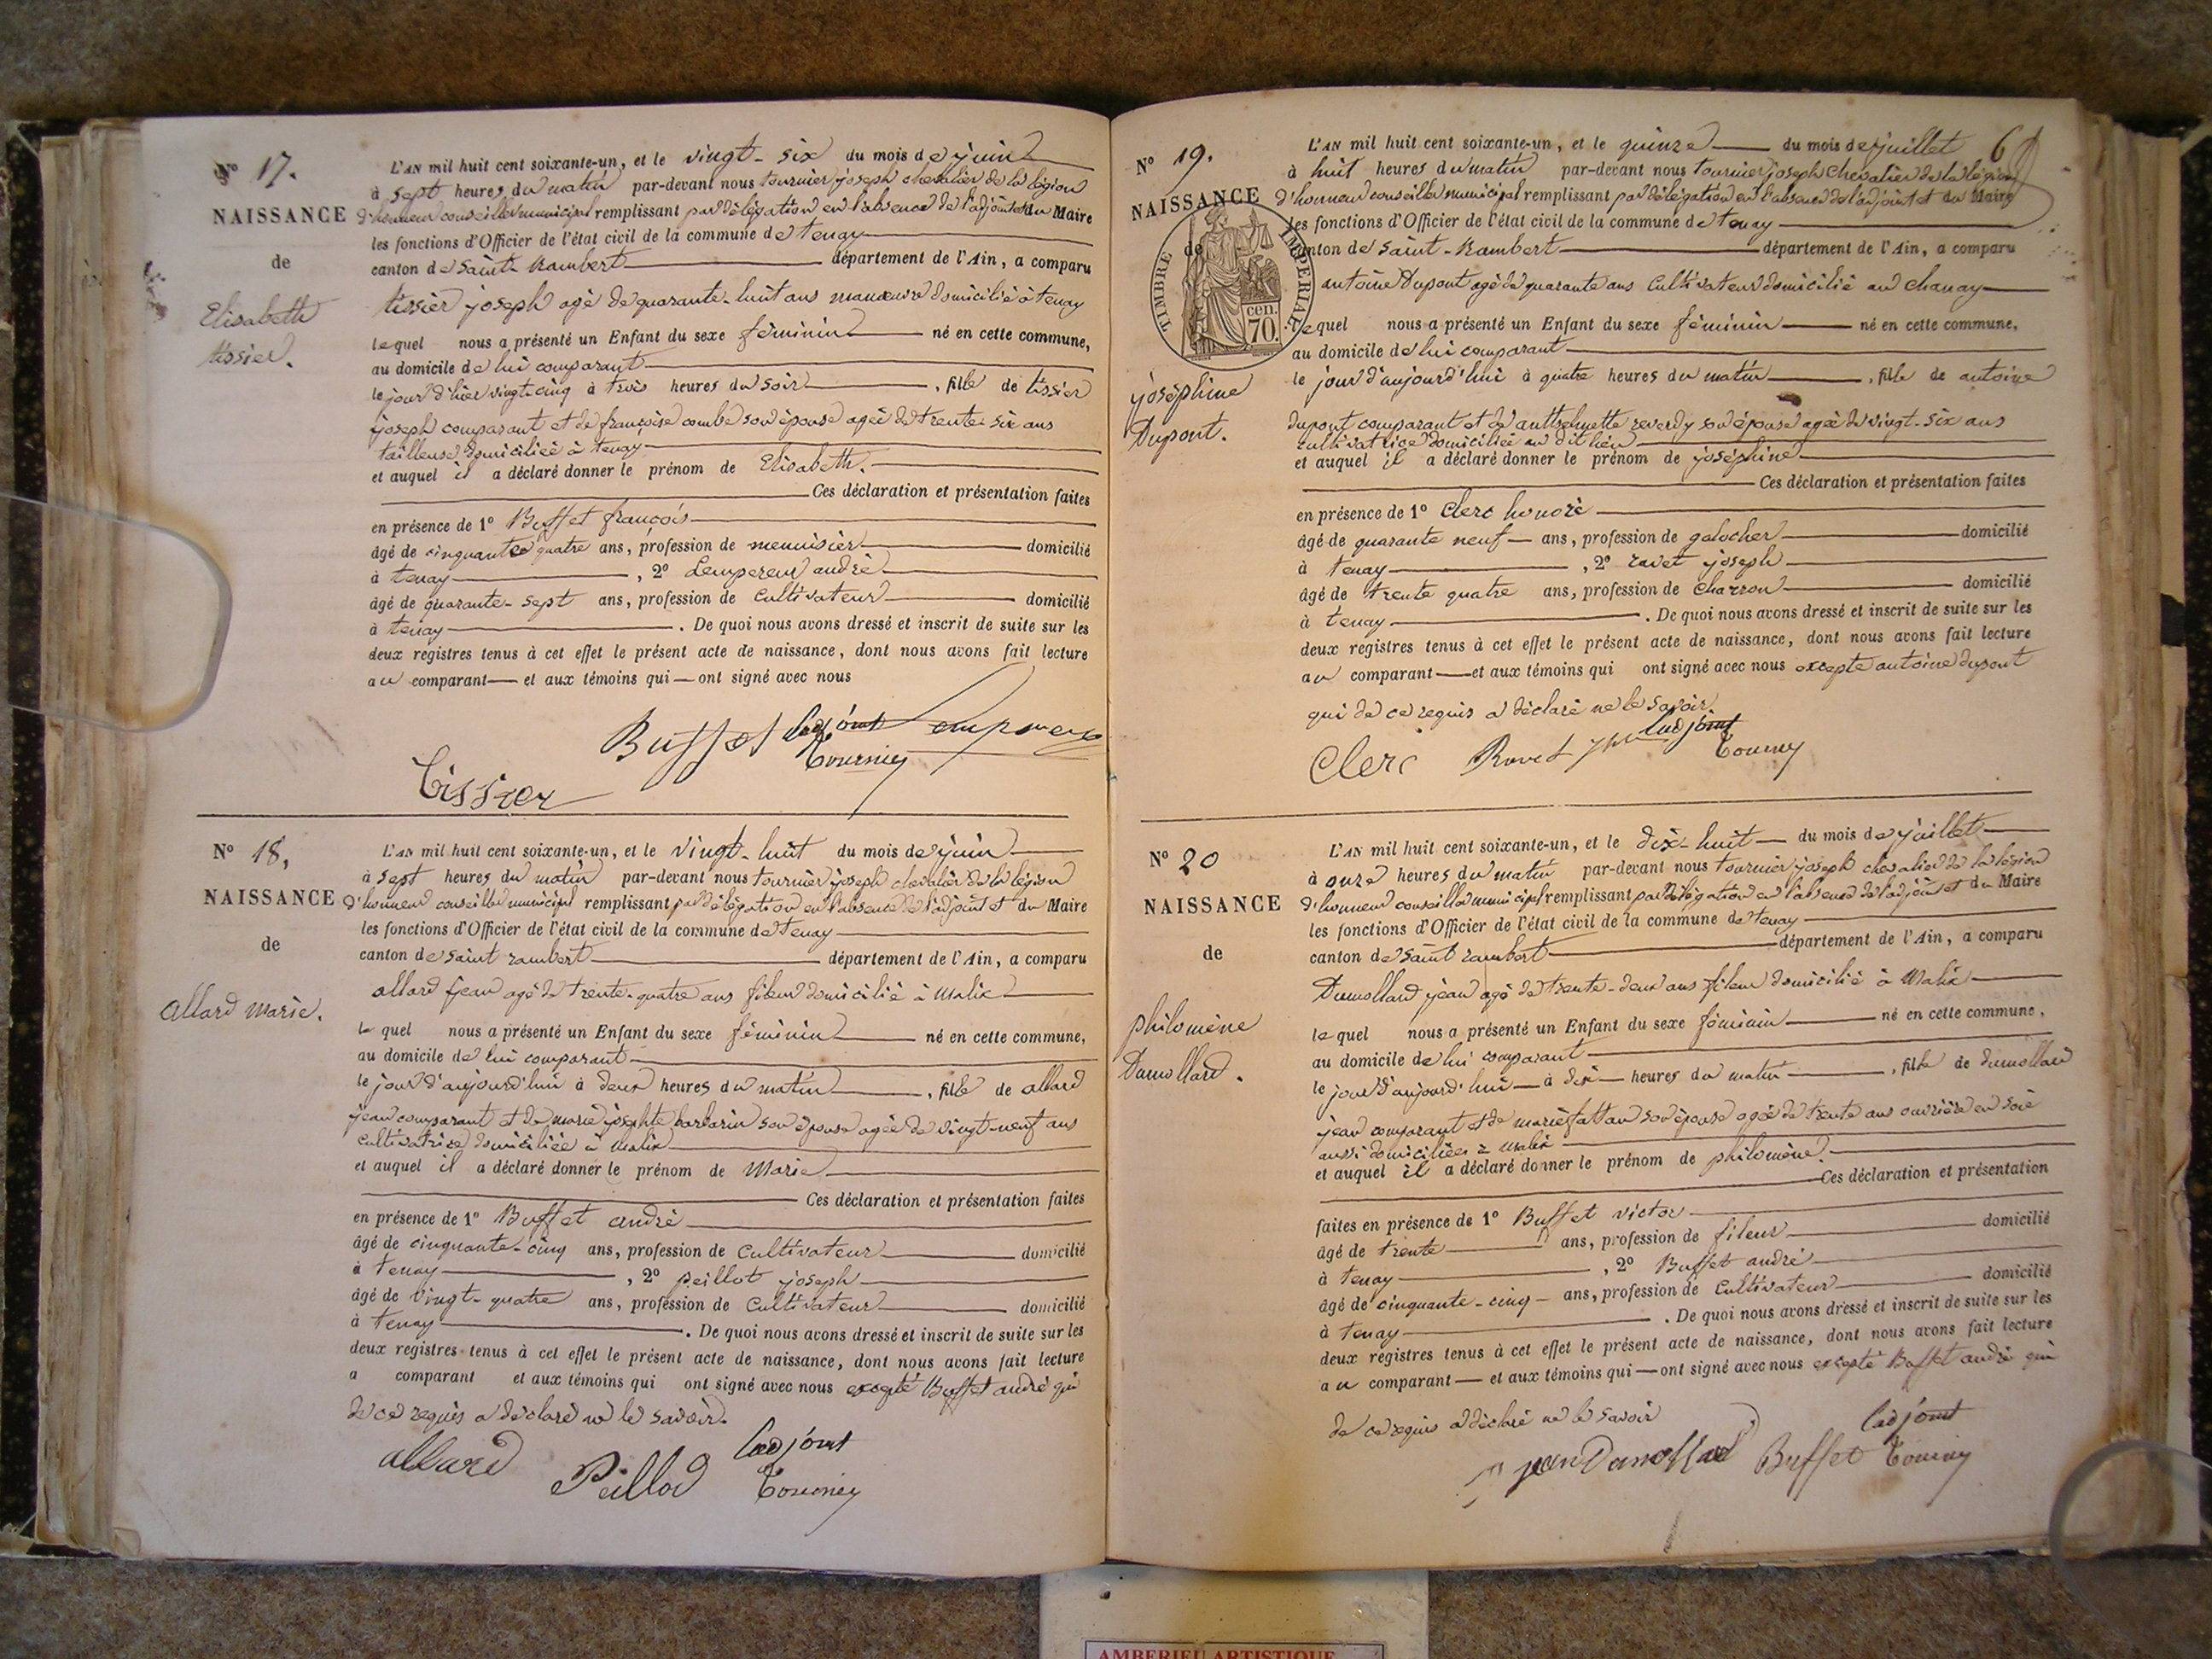 N° 17.
NAISSANCE
de
Elisabeth
tissier.
L'AN mil huit cent soixante-un, et le vingt-six du mois de juin
à sept heures du matin par-devant nous tournier joseph chevalier de la légion
d'honneur conseiller municipal remplissant par délégation en l'absence de l'adjoint et du Maire
les fonctions d'Officier de l'état civil de la commune de tenay
canton de saint-Rambert département de l'Ain, a comparu
tissier joseph agé de quarante-huit ans manœuvre domicilié à tenay
lequel nous a présenté un Enfant du sexe féminin né en cette commune,
au domicile de lui comparant
le jour d'hier vingt cinq à trois heures du soir, fille de tissier
joseph comparant et de françoise combe son épouse agée de trente-six ans
tailleuse domiciliée à tenay
et auquel il a déclaré donner le prénom de Elisabeth.
Ces déclaration et présentation faites
en présence de 1° Buffet françois
âgé de cinquante quatre ans, profession de menuisier domicilié
à tenay, 2° Lempereur andré
âgé de quarante-sept ans, profession de cultivateur domicilié
à tenay. De quoi nous avons dressé et inscrit de suite sur les
deux registres tenus à cet effet le présent acte de naissance, dont nous avons fait lecture
au comparant et aux témoins qui ont signé avec nous
Buffet ladjoint Lempereur
Tournier
Tissier
N° 18,
NAISSANCE
de
allard marie.
L'AN mil huit cent soixante-un, et le vingt-huit du mois de juin
à sept heures du matin par-devant nous tournier joseph chevalier de la légion
d'honneur conseiller municipal remplissant par délégation en l'absence de l'adjoint et du Maire
les fonctions d'Officier de l'état civil de la commune de tenay
canton de saint rambert département de l'Ain, a comparu
allard jean agé de trente-quatre ans fileur domicilié à Malix
lequel nous a présenté un Enfant du sexe féminin né en cette commune,
au domicile de lui comparant
le jour d'aujourd'hui à deux heures du matin, fille de allard
jean comparant et de marie josephte barbarin son épouse agée de vingt-neuf ans
cultivatrice domiciliée à malix
et auquel il a déclaré donner le prénom de Marie
Ces déclaration et présentation faites
en présence de 1° Buffet andré
âgé de cinquante-cinq ans, profession de cultivateur domicilié
à tenay, 2° peillot joseph
âgé de vingt-quatre ans, profession de cultivateur domicilié
à tenay. De quoi nous avons dressé et inscrit de suite sur les
deux registres tenus à cet effet le présent acte de naissance, dont nous avons fait lecture
a comparant et aux témoins qui ont signé avec nous excepté Buffet andré qui
de ce requis a déclaré ne le savoir.
allard Peillod ladjoint
Tournier
6
N° 19.
NAISSANCE
de
TIMBRE IMPERIAL
cen.
70.
joséphine
Dupont.
L'AN mil huit cent soixante-un, et le quinze du mois de juillet
à huit heures du matin par-devant nous tournier joseph chevalier de la légion
d'honneur conseiller municipal remplissant par délégation en l'absence de l'adjoint et du Maire
les fonctions d'Officier de l'état civil de la commune de tenay
canton de saint-Rambert département de l'Ain, a comparu
antoine Dupont agé de quarante ans cultivateur domicilié au chanay
lequel nous a présenté un Enfant du sexe féminin né en cette commune,
au domicile de lui comparant
le jour d'aujourd'hui à quatre heures du matin, fille de antoine
dupont comparant et de anthelmette reverdy son épouse agée de vingt-six ans
cultivatrice domiciliée au dit lieu
et auquel il a déclaré donner le prénom de joséphine
Ces déclaration et présentation faites
en présence de 1° Clerc honoré
âgé de quarante neuf ans, profession de galocher domicilié
à tenay, 2° ravet joseph
âgé de trente quatre ans, profession de charron domicilié
à tenay. De quoi nous avons dressé et inscrit de suite sur les
deux registres tenus à cet effet le présent acte de naissance, dont nous avons fait lecture
au comparant et aux témoins qui ont signé avec nous excepté antoine dupont
qui de ce requis a déclaré ne le savoir.
Clerc Ravet jph ladjoint
Tournier
N° 20
NAISSANCE
de
philomène
Dumollard.
L'AN mil huit cent soixante-un, et le dix-huit du mois de juillet
à onze heures du matin par-devant nous tournier joseph chevalier de la légion
d'honneur conseiller municipal remplissant par délégation en l'absence de l'adjoint et du Maire
les fonctions d'Officier de l'état civil de la commune de tenay
canton de saint rambert département de l'Ain, a comparu
Dumollard jean agé de trente-deux ans fileur domicilié à Malix
lequel nous a présenté un Enfant du sexe féminin né en cette commune,
au domicile de lui comparant
le jour d'aujourd'hui à dix heures du matin, fille de dumollard
jean comparant et de marie son épouse agée de trente ans ouvrière en soie
aussi domiciliée à malix
et auquel il a déclaré donner le prénom de philomène.
Ces déclaration et présentation
faites en présence de 1° Buffet victor
âgé de trente ans, profession de fileur domicilié
à tenay, 2° Buffet andré
âgé de cinquante-cinq ans, profession de cultivateur domicilié
à tenay. De quoi nous avons dressé et inscrit de suite sur les
deux registres tenus à cet effet le présent acte de naissance, dont nous avons fait lecture
au comparant et aux témoins qui ont signé avec nous excepté Buffet andré qui
de ce requis a déclaré ne le savoir
jean Dumollard Buffet ladjoint
Tournier
AMBERIEU ARTISTIQUE